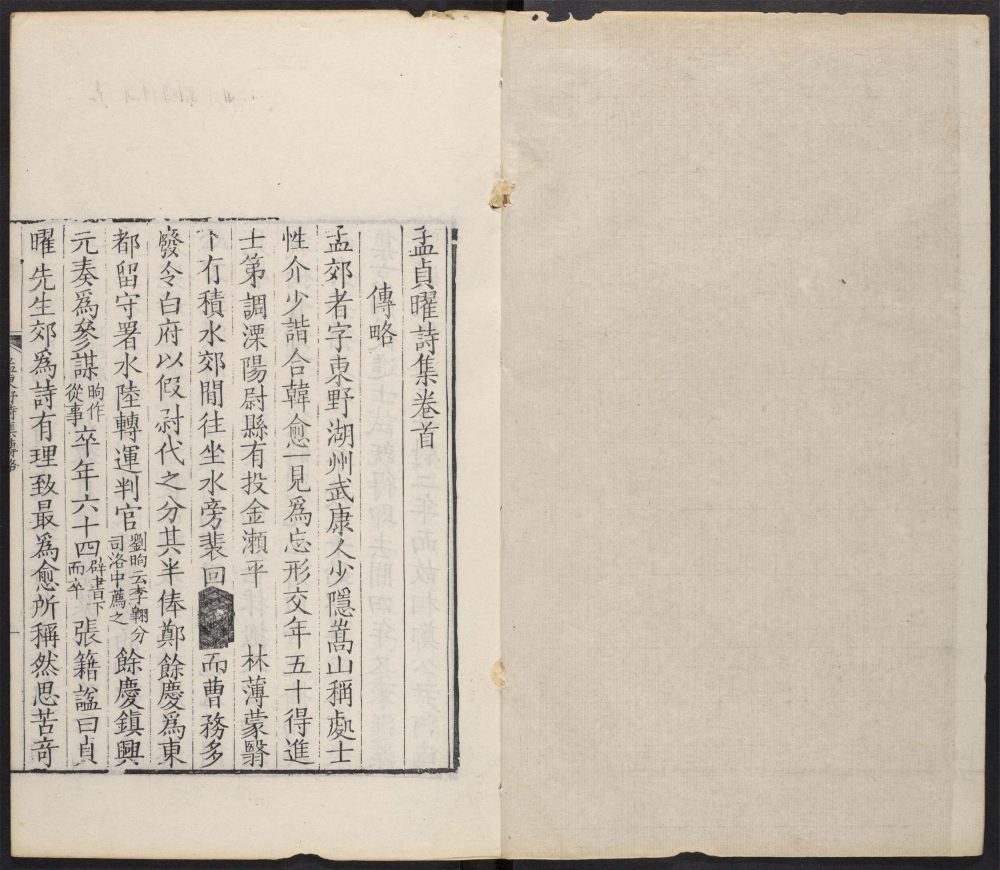 孟貞曜詩集卷首
傳略
孟郊者字東野湖州武康人少隱嵩山稱處士
性介少諧合韓愈一見爲忘形交年五十得進
士第調溧陽尉縣有投金瀨平 林薄蒙翳
下有積水郊間往坐水旁裴回 而曹務多
發令白府以假尉代之分其半俸鄭餘慶爲東
都留守署水陸轉運判官劉昫云李翱分司洛中薦之餘慶鎭興
元奏爲參謀昫作從事卒年六十四辟書下而卒張籍諡曰貞
曜先生郊爲詩有理致最爲愈所稱然思苦奇